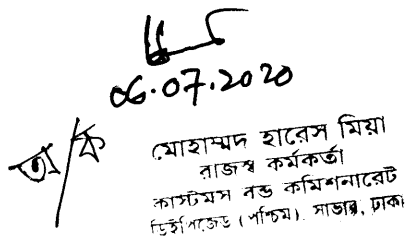 06.07.2020
তা/ক
মোহাম্মদ হারেস মিয়া
রাজস্ব কর্মকর্তা
কাস্টমস বন্ড কমিশনারেট
ডিইপিজেড (পশ্চিম). সাভার, ঢাকা